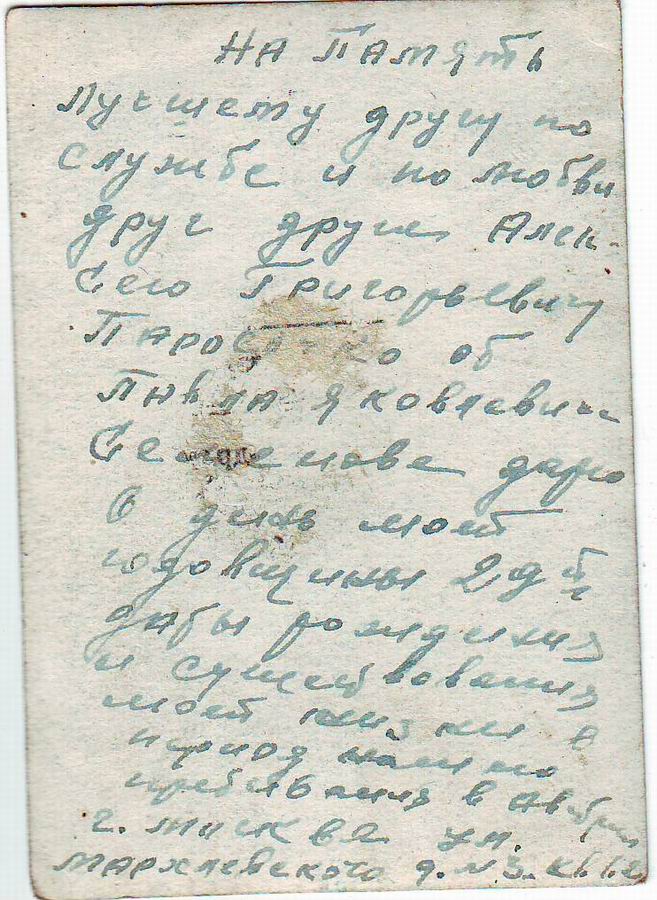 НА ПАМЯТЬ
Лучшему другу по
службе и по любви
друг другу Алек-
сею Григорьевичу
об
Павла Яковлевич
дарю
В день моей
годовщины
даты рождения
и существования
моей жизни в
период нашего
пребывания в
г. Москве ул.
Мархлевского д. N 3. кв.